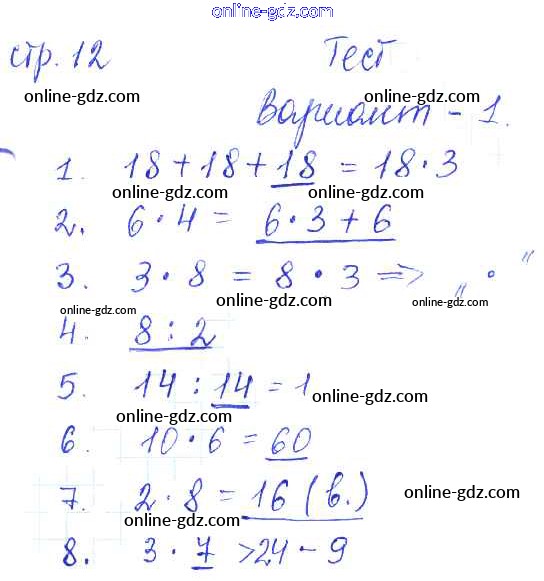 online-gdz.com
стр. 12 Тест
online-gdz.com online-gdz.com
Вариант - 1.
1. 18 + 18 + 18 = 18 · 3
online-gdz.com online-gdz.com
2. 6 · 4 = 6 · 3 + 6
3. 3 · 8 = 8 · 3 => „ · “
online-gdz.com online-gdz.com online-gdz.com
4. 8 : 2
5. 14 : 14 = 1
online-gdz.com online-gdz.com
6. 10 · 6 = 60
7. 2 · 8 = 16 (в.)
online-gdz.com online-gdz.com
8. 3 · 7 > 24 - 9